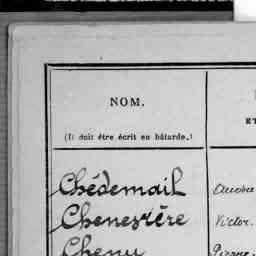 NOM.
(Il doit être écrit en bâtarde.)
ET
Chédemail
Chenesière Victor.
Chenu Pierre